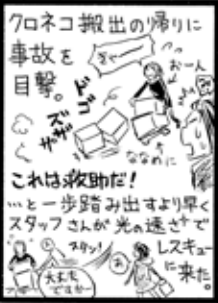 クロネコ搬出の帰りに
事故を
目撃。
おーん
ドゴ
ズザザ
ななめに
これは救助だ!
…と一歩踏み出すより早く
スタッフさんが光の速さで
レスキュー
に来た。
スタン!
大丈夫
ですかー